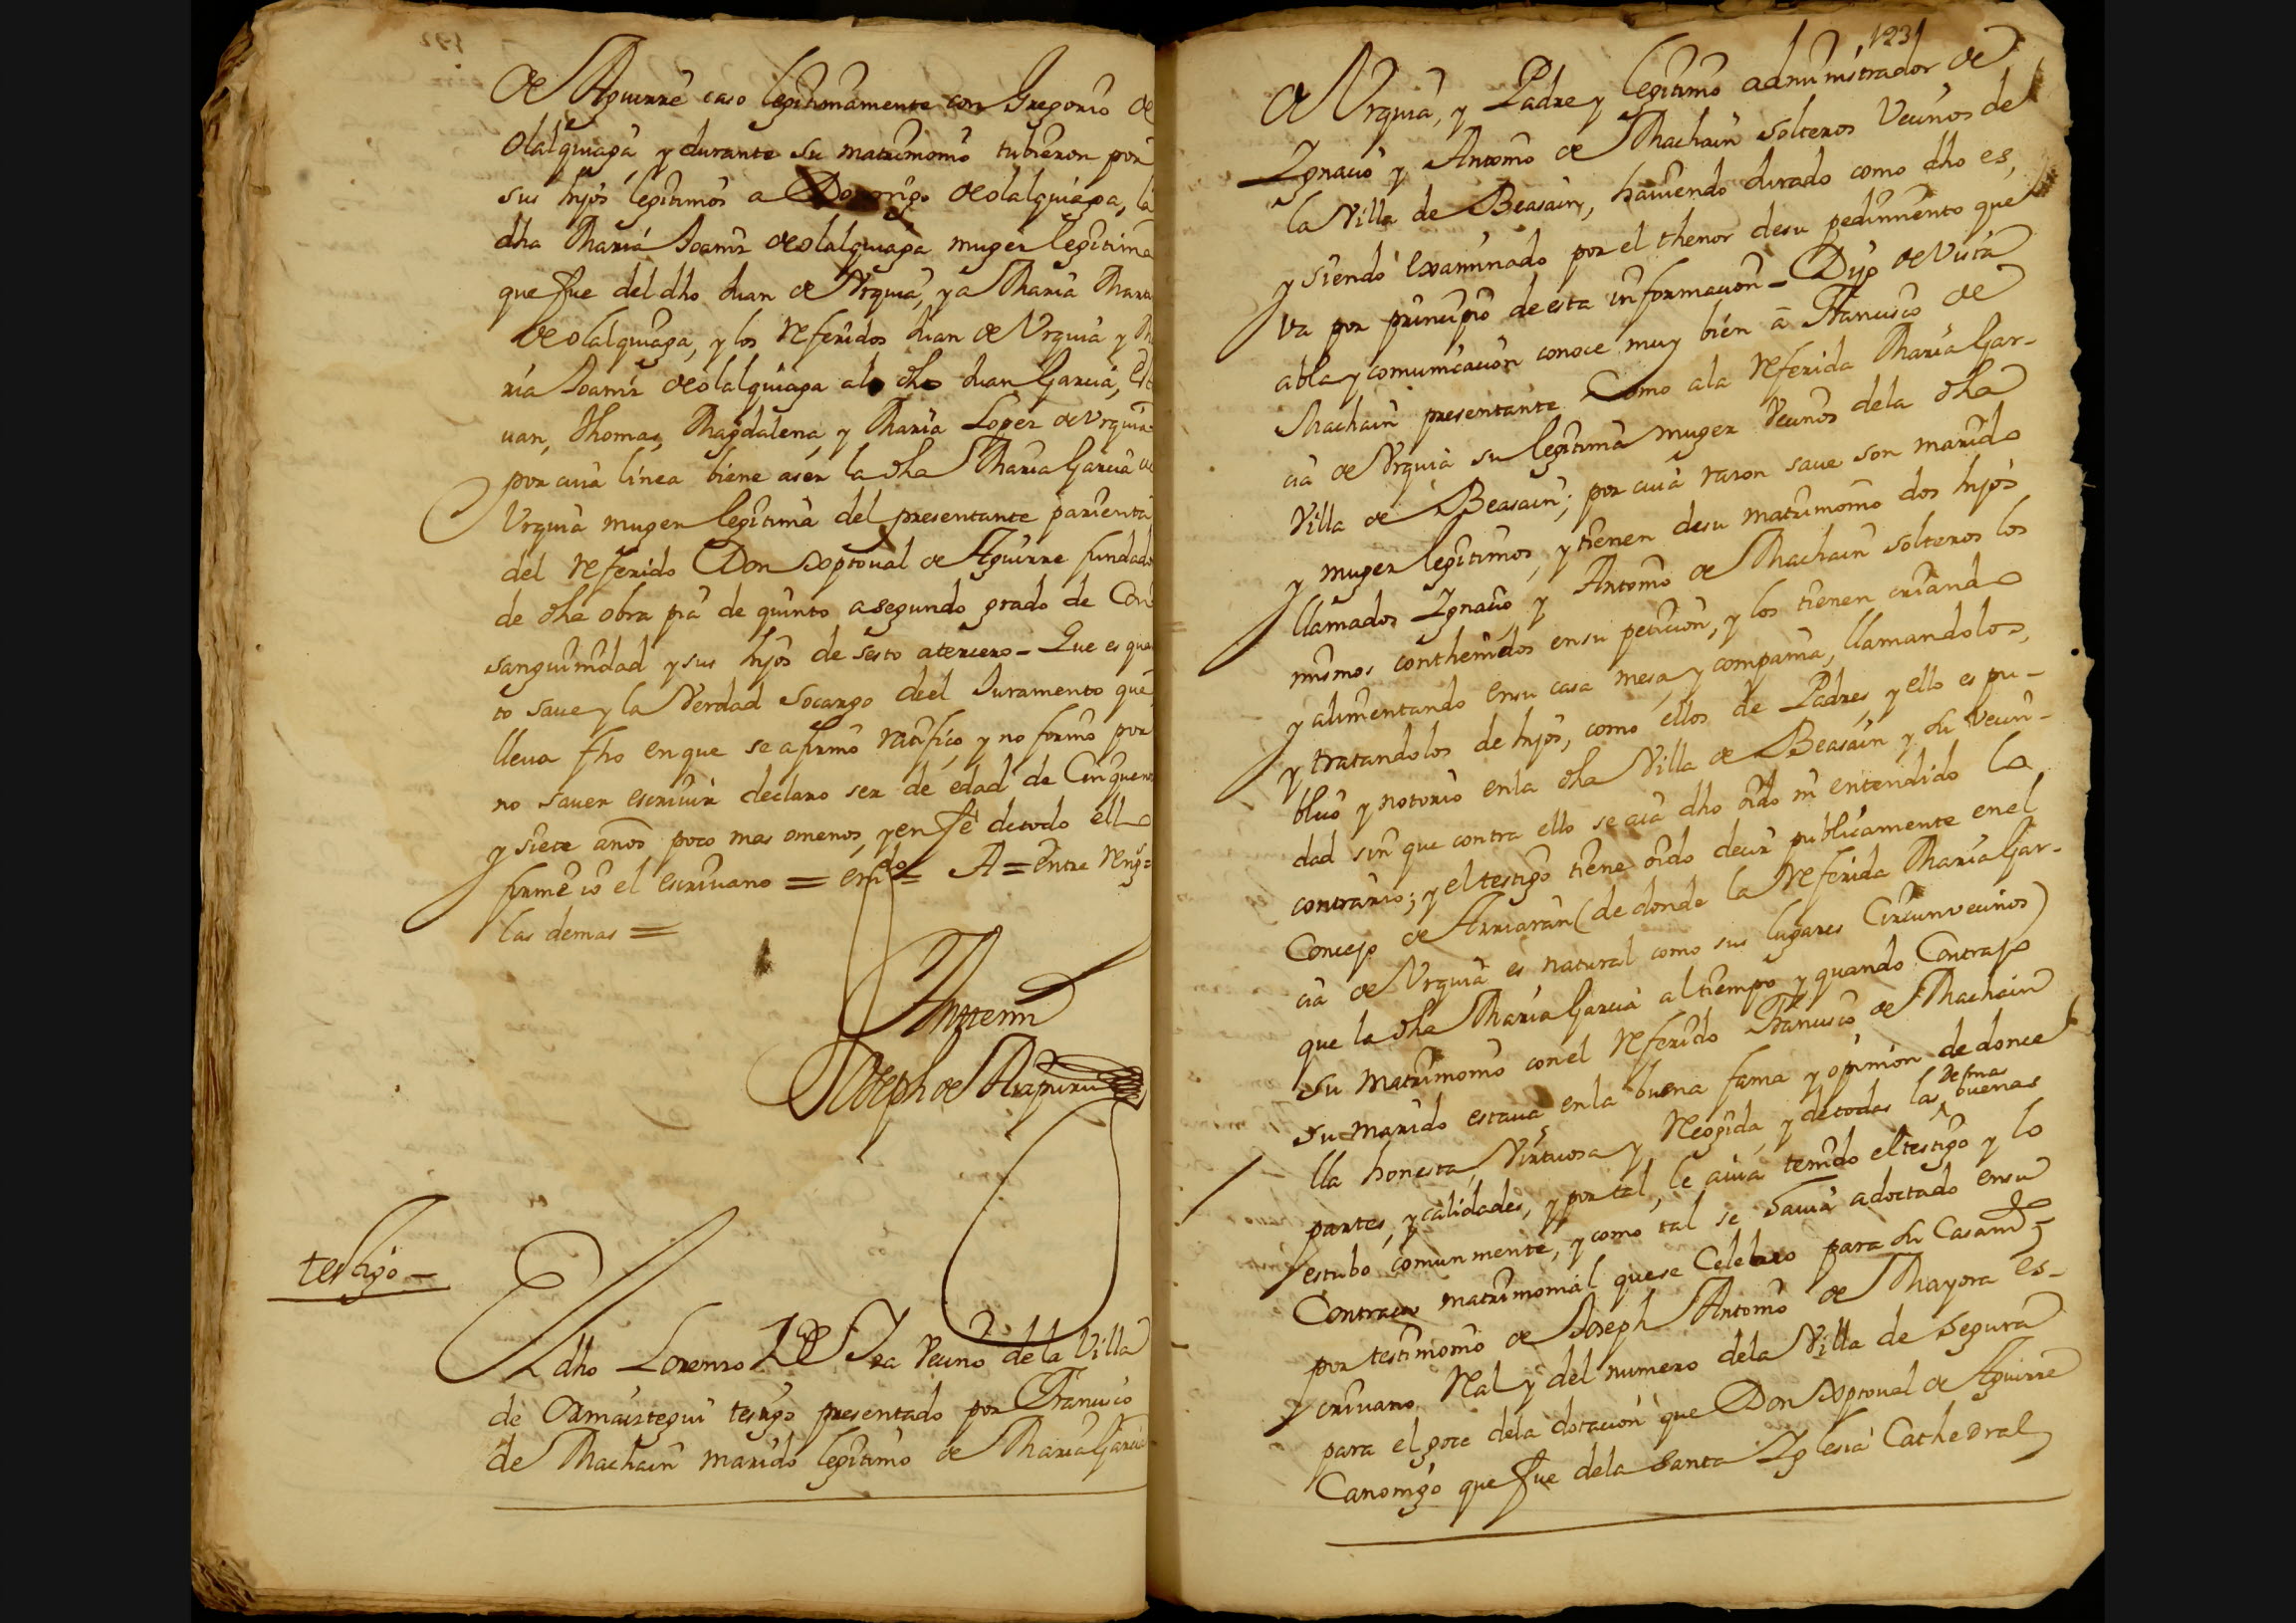 de Aguirre caso legitimamente con Gregorio de
Olalquiaga, y durante su matrimonio tubieron por
sus hijos legitimos a Domingo de olalquiaga, la
dha Maria Joaniz de olalquiaga muger legitima
que fue del dho Juan de Vrquia, y a Maria Marti
de olalquiaga, y los referidos Juan de Vrquia y Ma
ria Joaniz de olalquiaga al dho Juan Garcia, Est
uan, Thomas, Magdalena, y Maria Lopez de Vrquia
por cuia linea biene aser la dha Maria Garcia de
Vrquia muger legitima del presentante parienta
del referido Don Xptoual de Aguirre fundado
de dha obra pia de quinto a segundo grado de Con
sanguinidad y sus hijos de sesto a tercero - Que es quan
to saue y la Verdad Socargo deel Juramento que
lleua fho en que se afirmo ratifico, y no formo por
no sauer escriuir declaro ser de edad de Cinquenta
y siete años poco mas omenos, y en fe de todo ello
firme io el escriuano = emdo = A = entre Rengs
las demas =
Antte mi
Joseph de Aizpuru
testigo -
El dho Lorenzo de Iza vecino de la Villa
de Ormaiztegui testigo presentado por Francisco
de Machain marido legitimo de Maria Garcia
123
de Vrquia, y Padre y legitimo administrador de
Ignacio y Antonio de Machain solteros Vecinos de
la Villa de Beasain, hauiendo Jurado como dho es,
y siendo examinado por el thenor de su pedimiento que
va por principio de esta informacion - Dijo de Vista
abla y comunicacion conoce muy bien a Francisco de
Machain presentante Como ala referida Maria Gar-
cia de Vrquia su legitima muger Vecinos dela dha
Villa de Beasain; por cuia razon saue son marido
y muger legitimos, y tienen de su matrimonio dos hijos
llamados Ignacio, y Antonio de Machain solteros los
mismos conthenidos en su peticion, y los tienen criando
y alimentando en su casa mesa y compania, llamandolos,
y tratandolos de hijos, como ellos de Padres, y ello es pu-
blico y notorio en la dha Villa de Beasain y su vecin-
dad sin que contra ello se aia dho oido ni entendido lo
contrario; y el testigo tiene oido decir publicamente en el
Concejo de Arriaran (de donde la referida Maria Gar-
cia de Vrquia es natural como sus lugares Circunvecinos)
que la dha Maria Garcia al tiempo y quando Contrajo
su matrimonio con el referido Francisco de Machain
su marido estaua en la buena fama y opinion de donce
lla honesta, Virtuosa y Recogida, y de todas las demas buenas
partes, y calidades, y por tal, le auia tenido el testigo y lo
estubo comunmente, y como tal se hauia adoctado en su
Contrato matrimonial que se Celebro para su Casamto
por testimonio de Joseph Antonio de Mayora es-
criuano Real y del numero dela Villa de Segura
para el goce dela dotacion que Don Xptoual de Aguirre
Canonigo que fue dela Santa Iglesia Cathedral